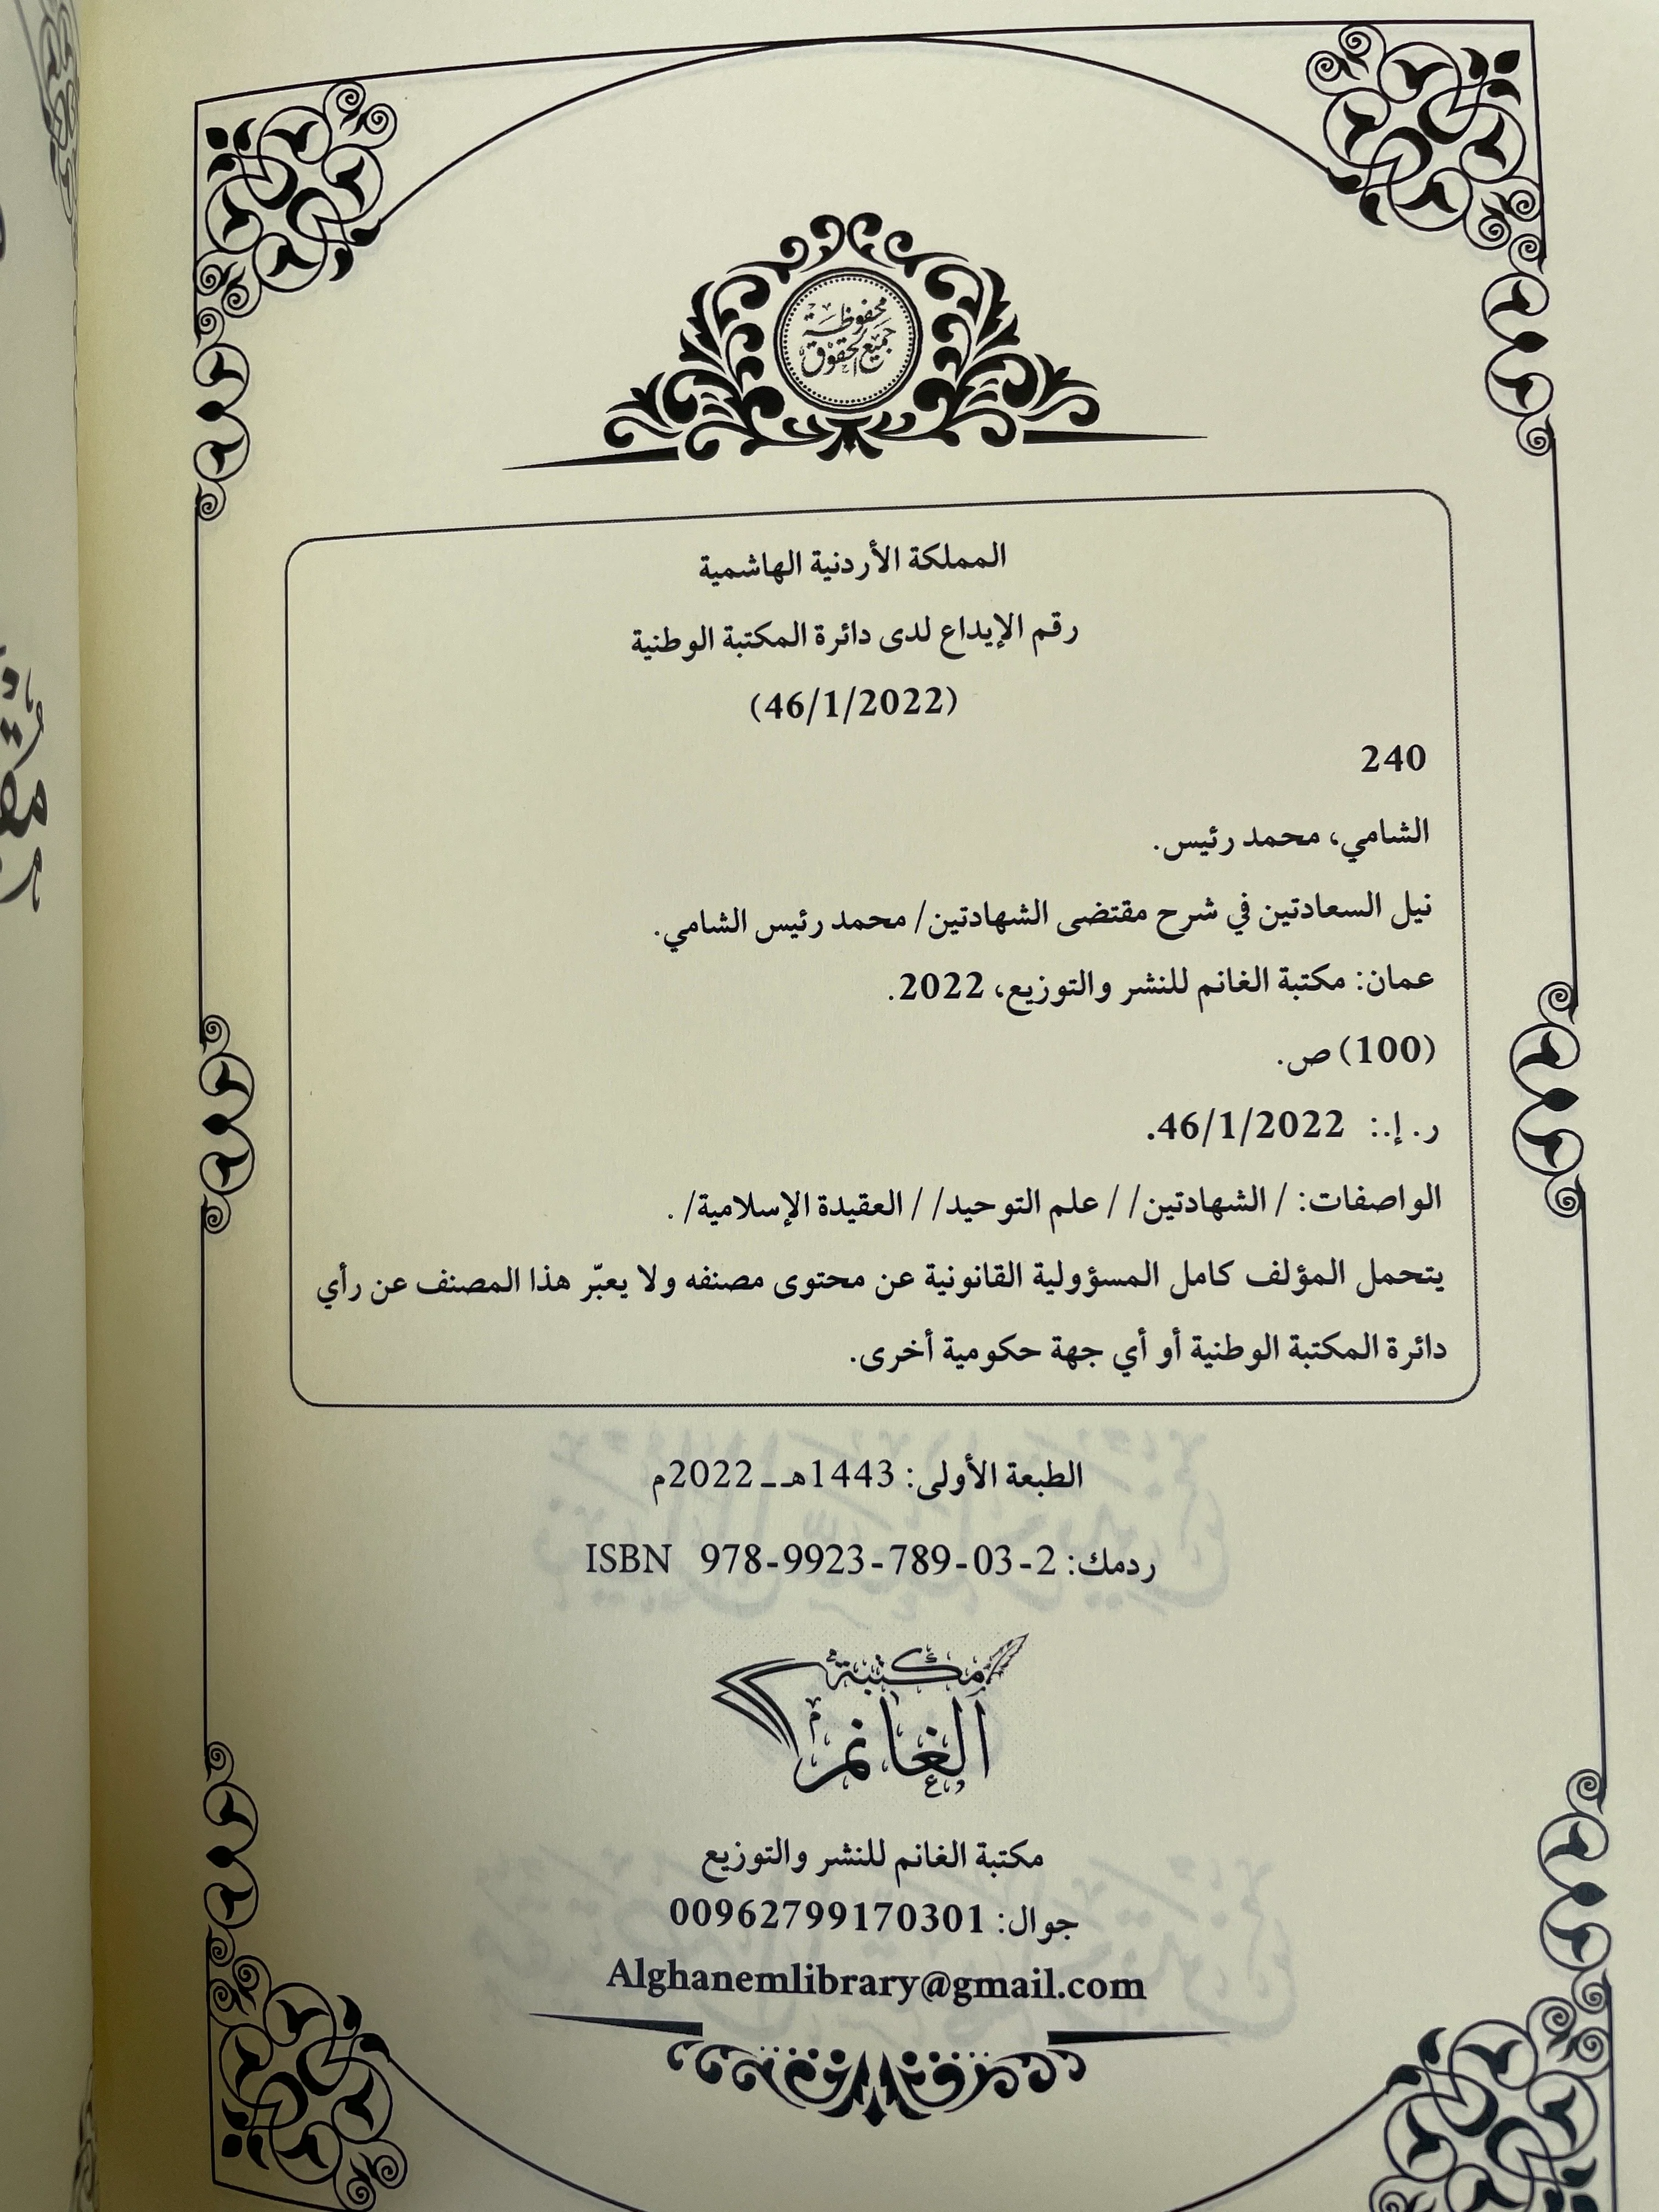 محفوظة
جميع الحقوق
المملكة الأردنية الهاشمية
رقم الإيداع لدى دائرة المكتبة الوطنية
(46/1/2022)
240
الشامي، محمد رئيس.
نيل السعادتين في شرح مقتضى الشهادتين/ محمد رئيس الشامي.
عمان: مكتبة الغانم للنشر والتوزيع، 2022.
(100) ص.
ر. إ.: 46/1/2022.
الواصفات: / الشهادتين/ / علم التوحيد/ / العقيدة الإسلامية/ .
يتحمل المؤلف كامل المسؤولية القانونية عن محتوى مصنفه ولا يعبّر هذا المصنف عن رأي
دائرة المكتبة الوطنية أو أي جهة حكومية أخرى.
الطبعة الأولى: 1443هـ ـ 2022م
ردمك: ISBN 978-9923-789-03-2
مكتبة
الغانم
مكتبة الغانم للنشر والتوزيع
جوال: 00962799170301
Alghanemlibrary@gmail.com